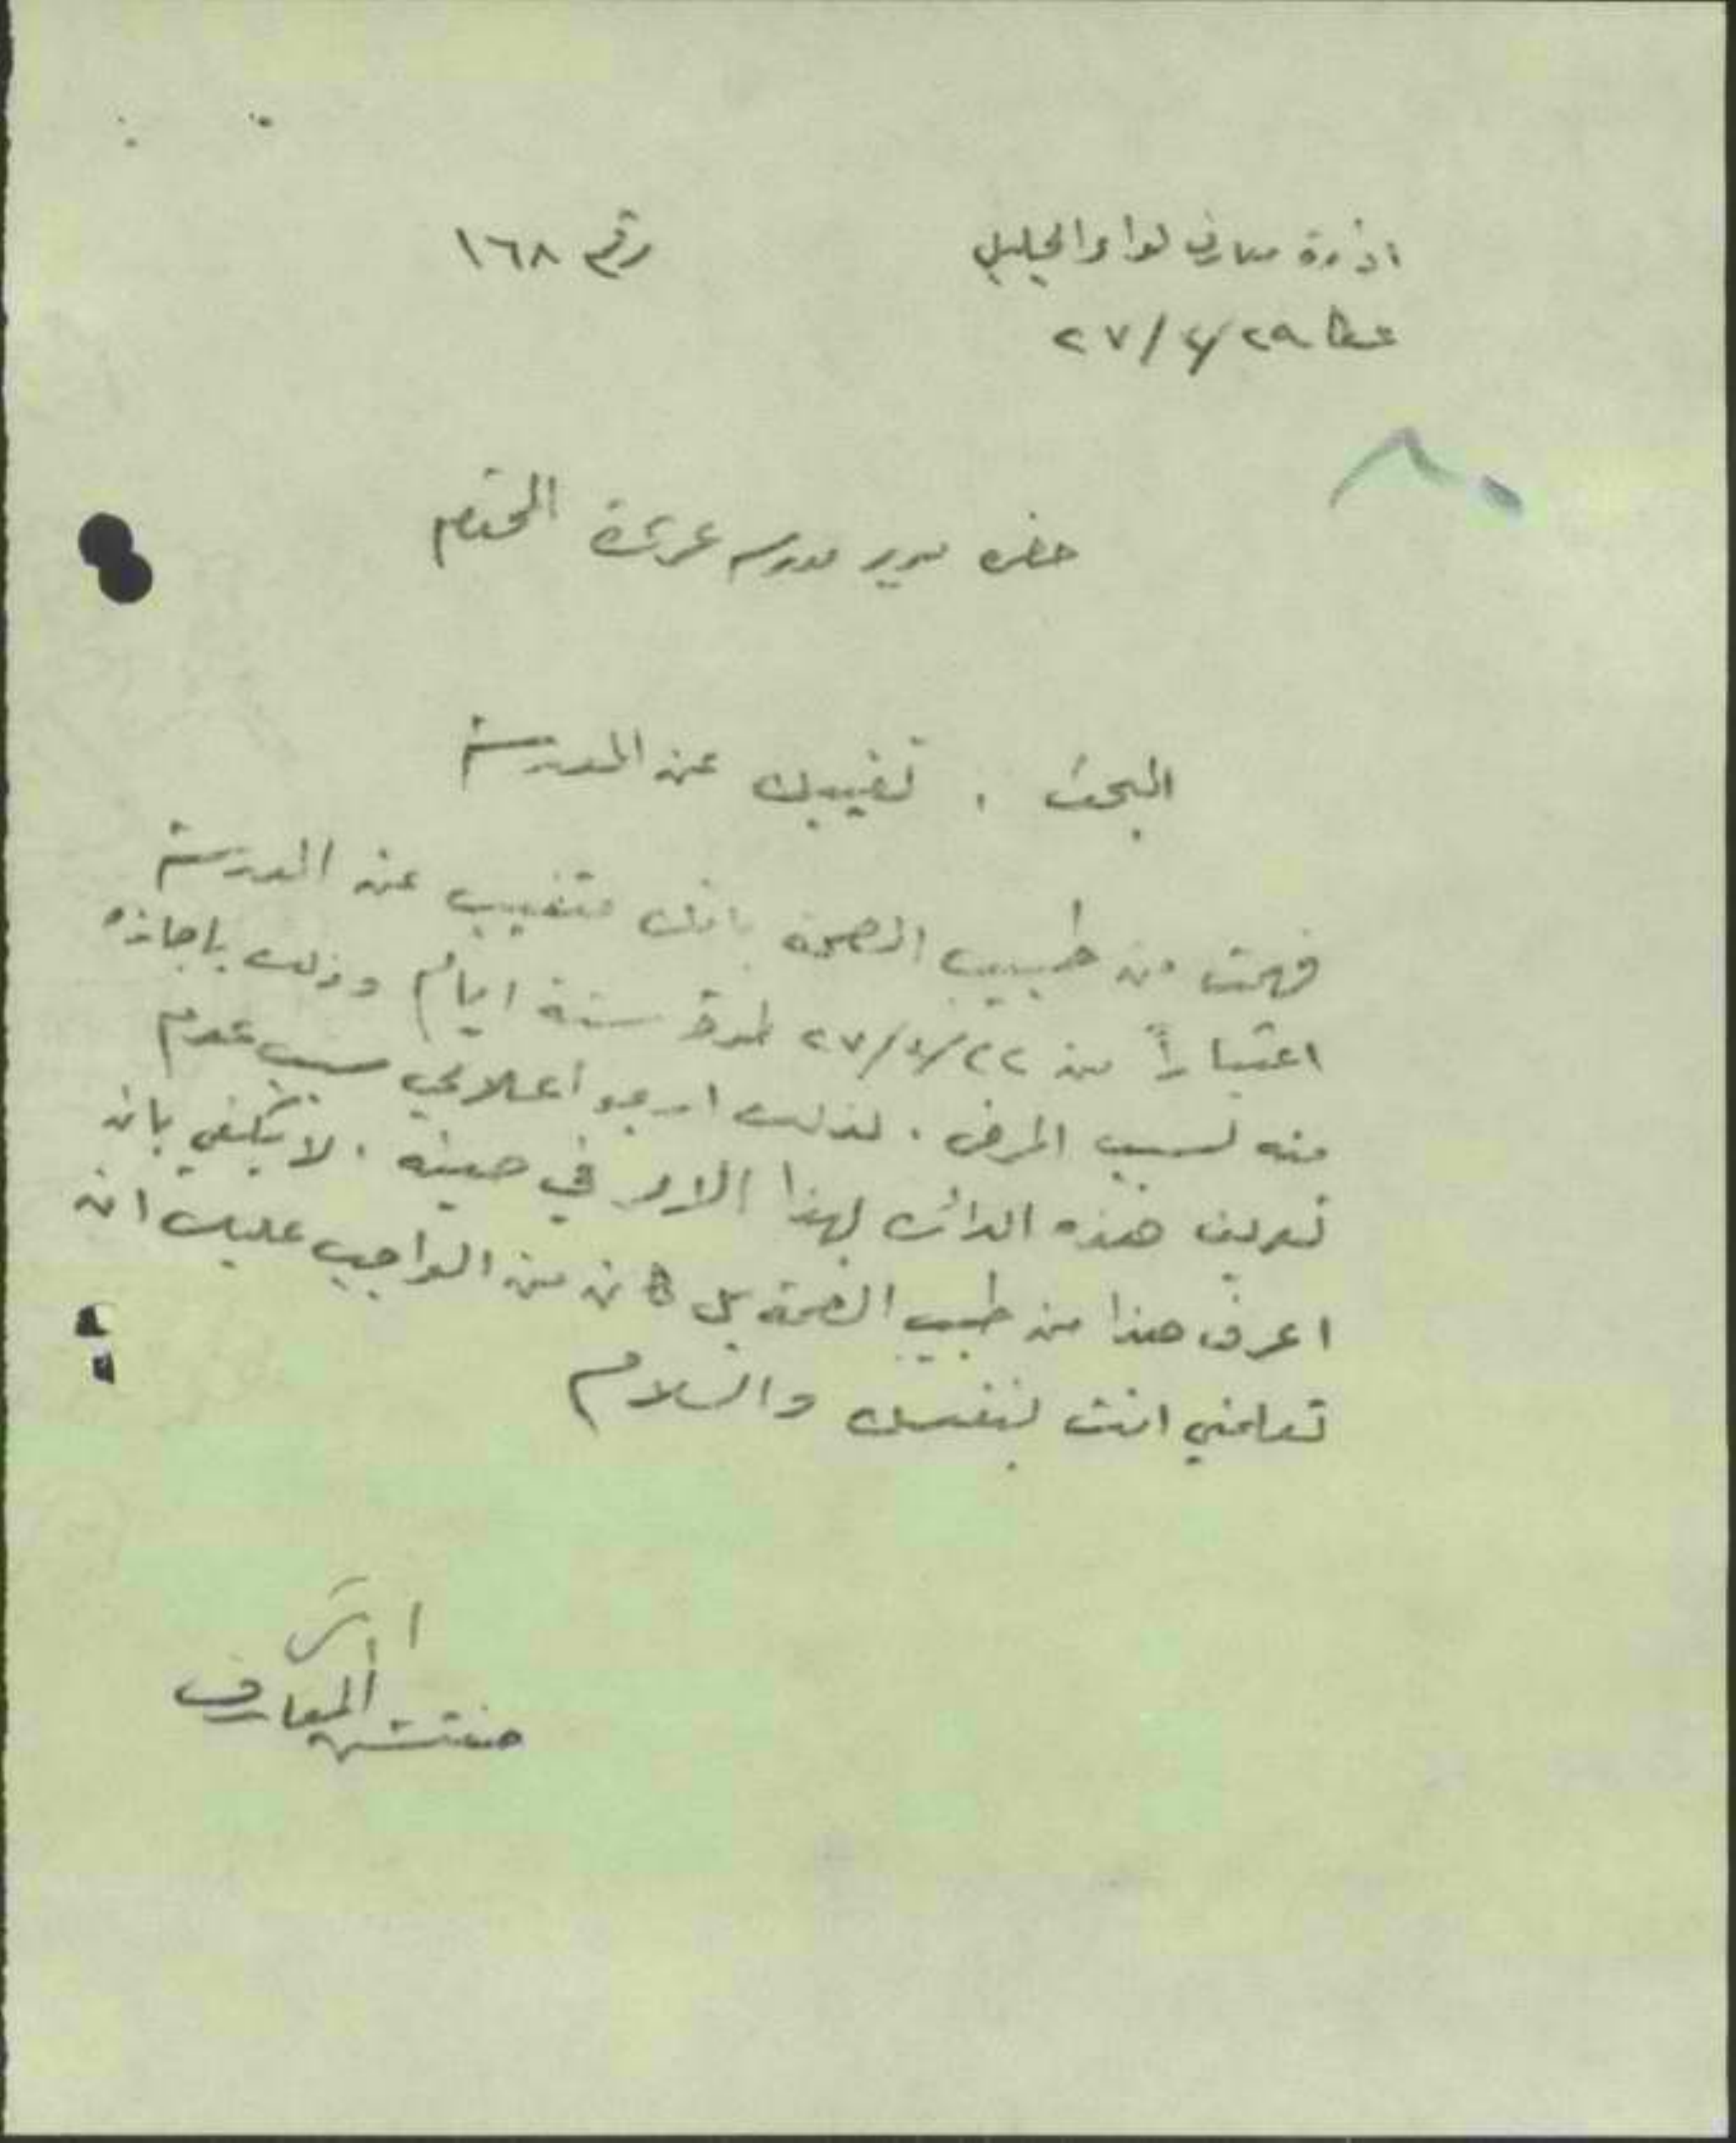 ادارة معارف لواء الجليل
رقم ١٦٨
عكا ٢٩/٤/٢٧
حضرة مدير مدرسة المحترم
البحث . تغيبك عن المدرسة
فهمت من طبيب الصحة بانك متغيب عن المدرسة
اعتباراً من ٢٢/٤/٢٧ لمدة ستة ايام وذلك باجازه
منه لسبب المرض . لذلك ارجو اعلامي سبب عدم
تعريف هذه الدائره بهذا الامر في حينه . لا يكفي بان
اعرف هذا من طبيب الصحة بل كان من الواجب عليك ان
تعلمني انت بنفسك والسلام
مفتش المعارف